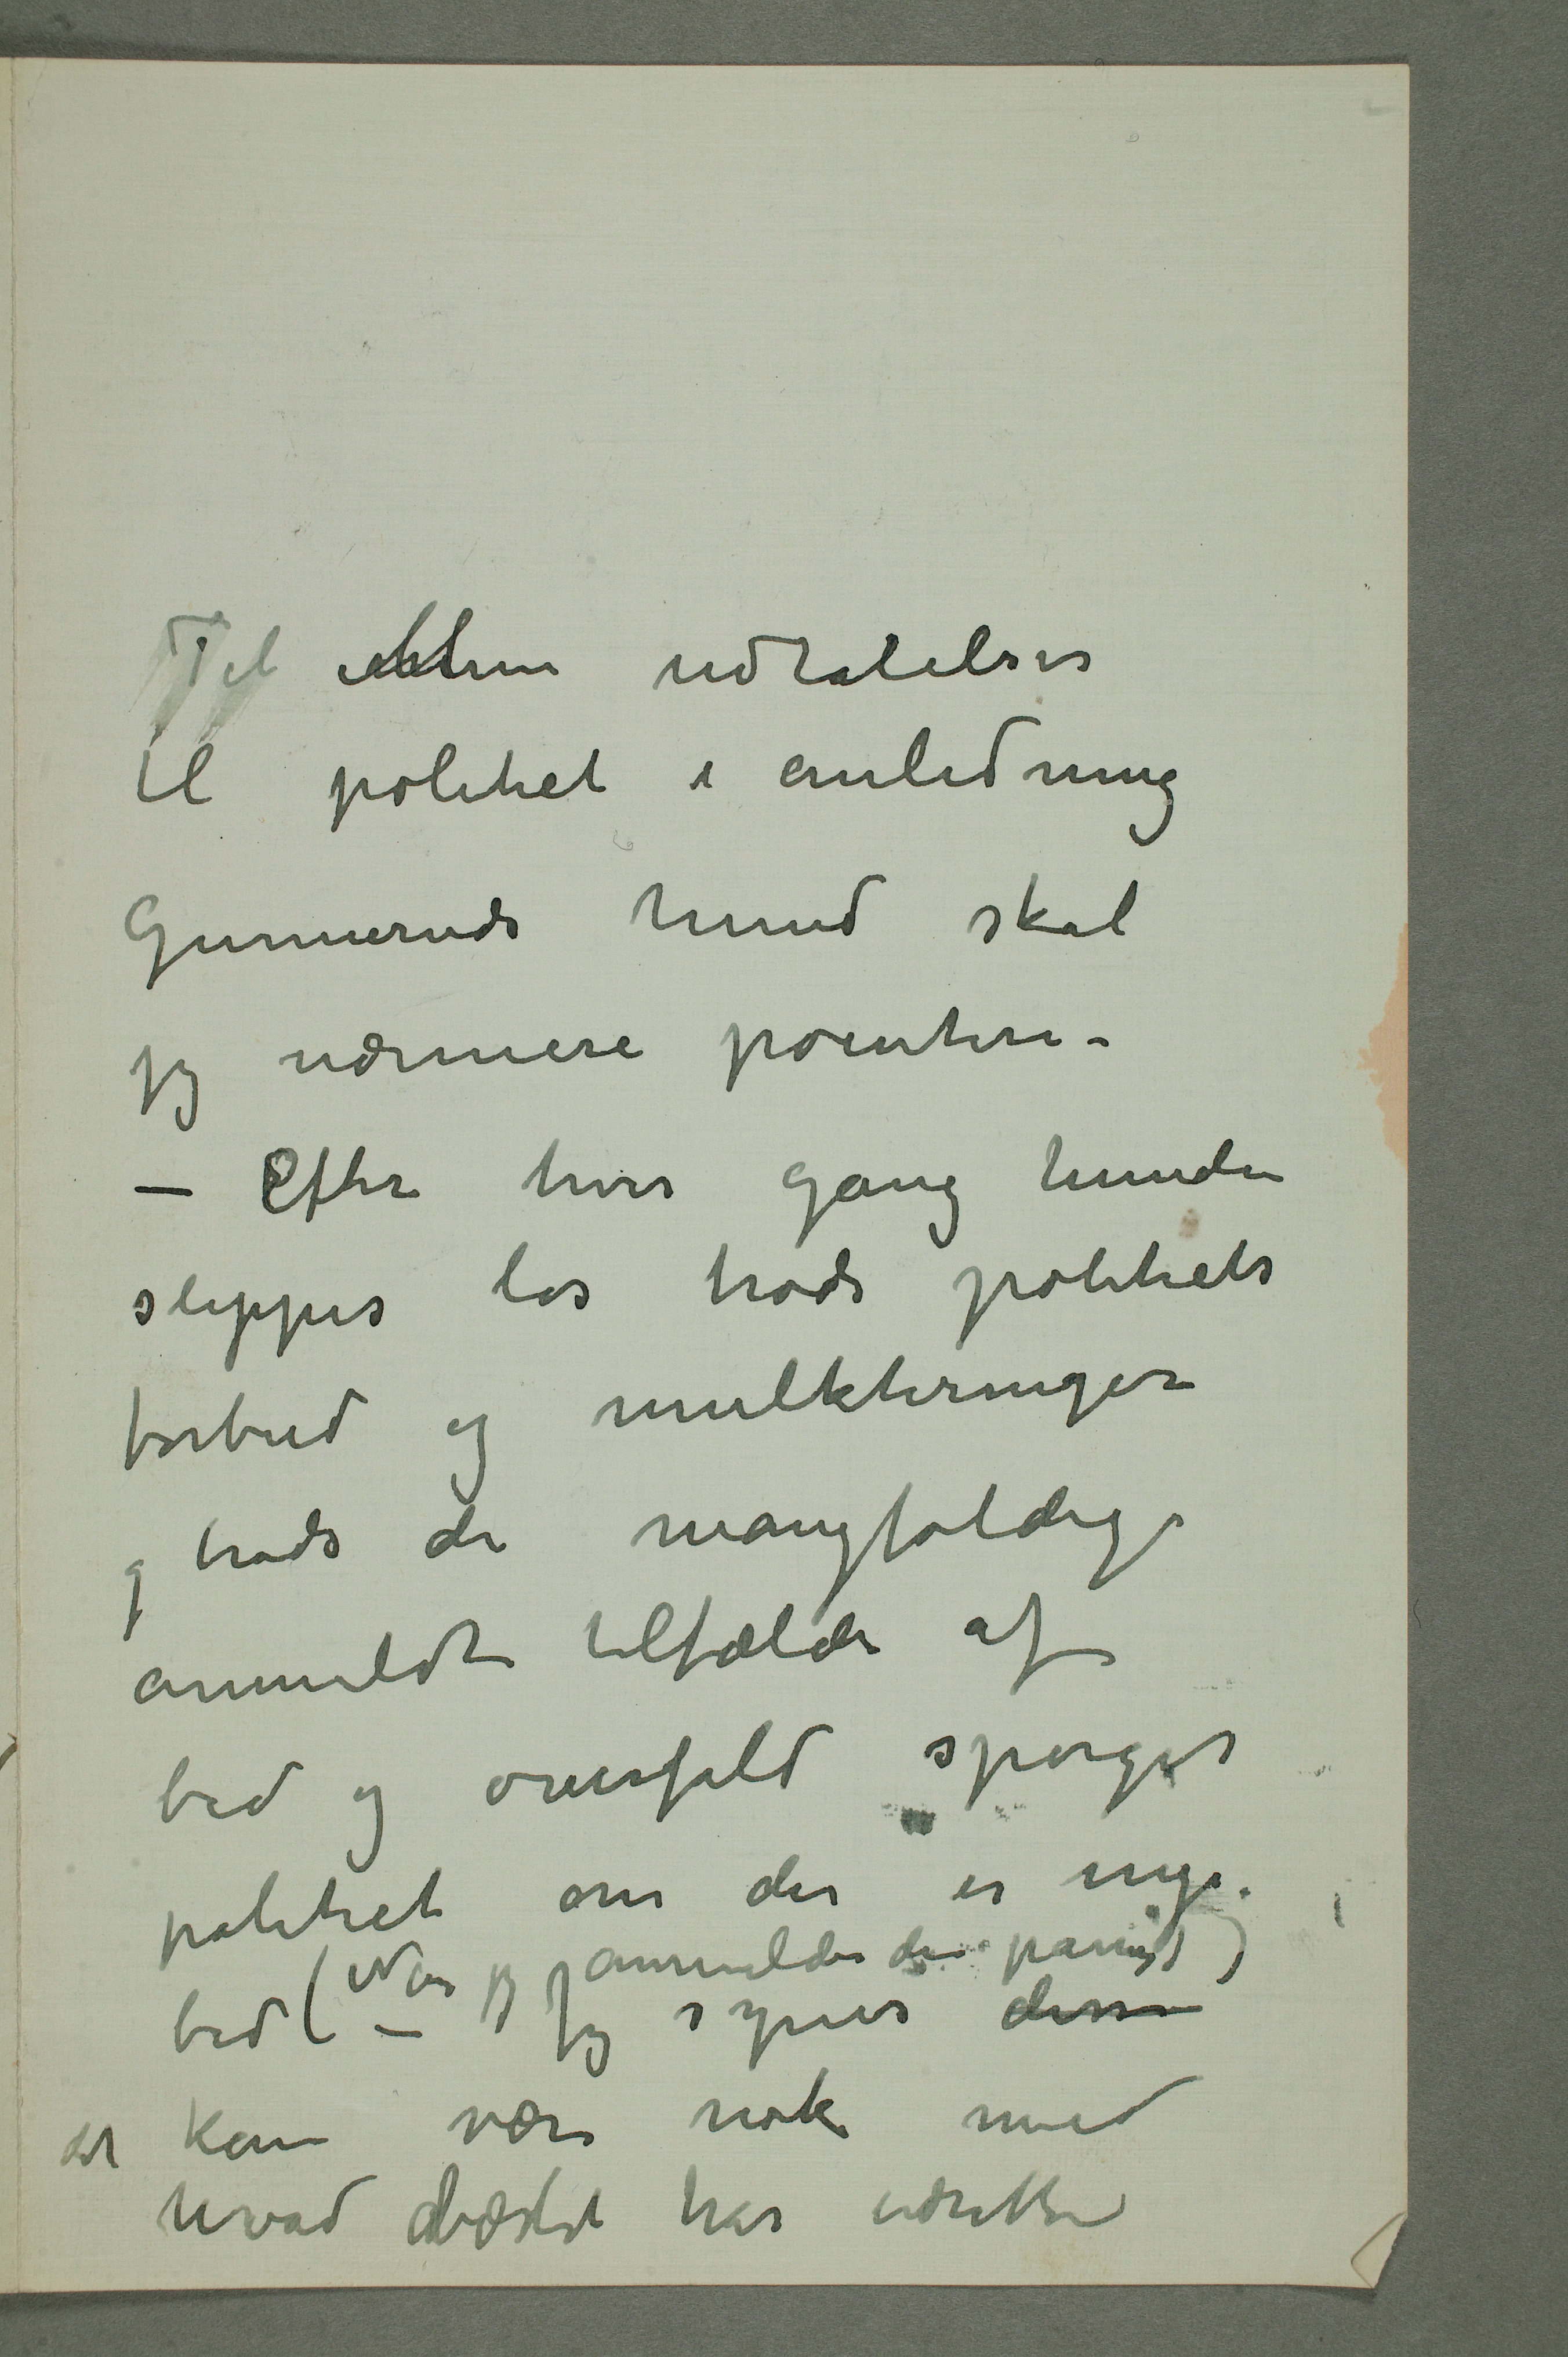 Til mine udtalelser
til politiet i anledning
Gunneruds hund skal
jeg nærmere pointere –
– Efter hver gang hunden
slippes løs trods politiets
forbud og mulkteringer
og trods de mangfoldige
anmeldte tilfælde af
bid og overfald spørger
politiet om der er nye
(Når jeg anmelder den påny)
bid – Jeg synes disse
det kan være nok med
hvad bæstet har udrettet